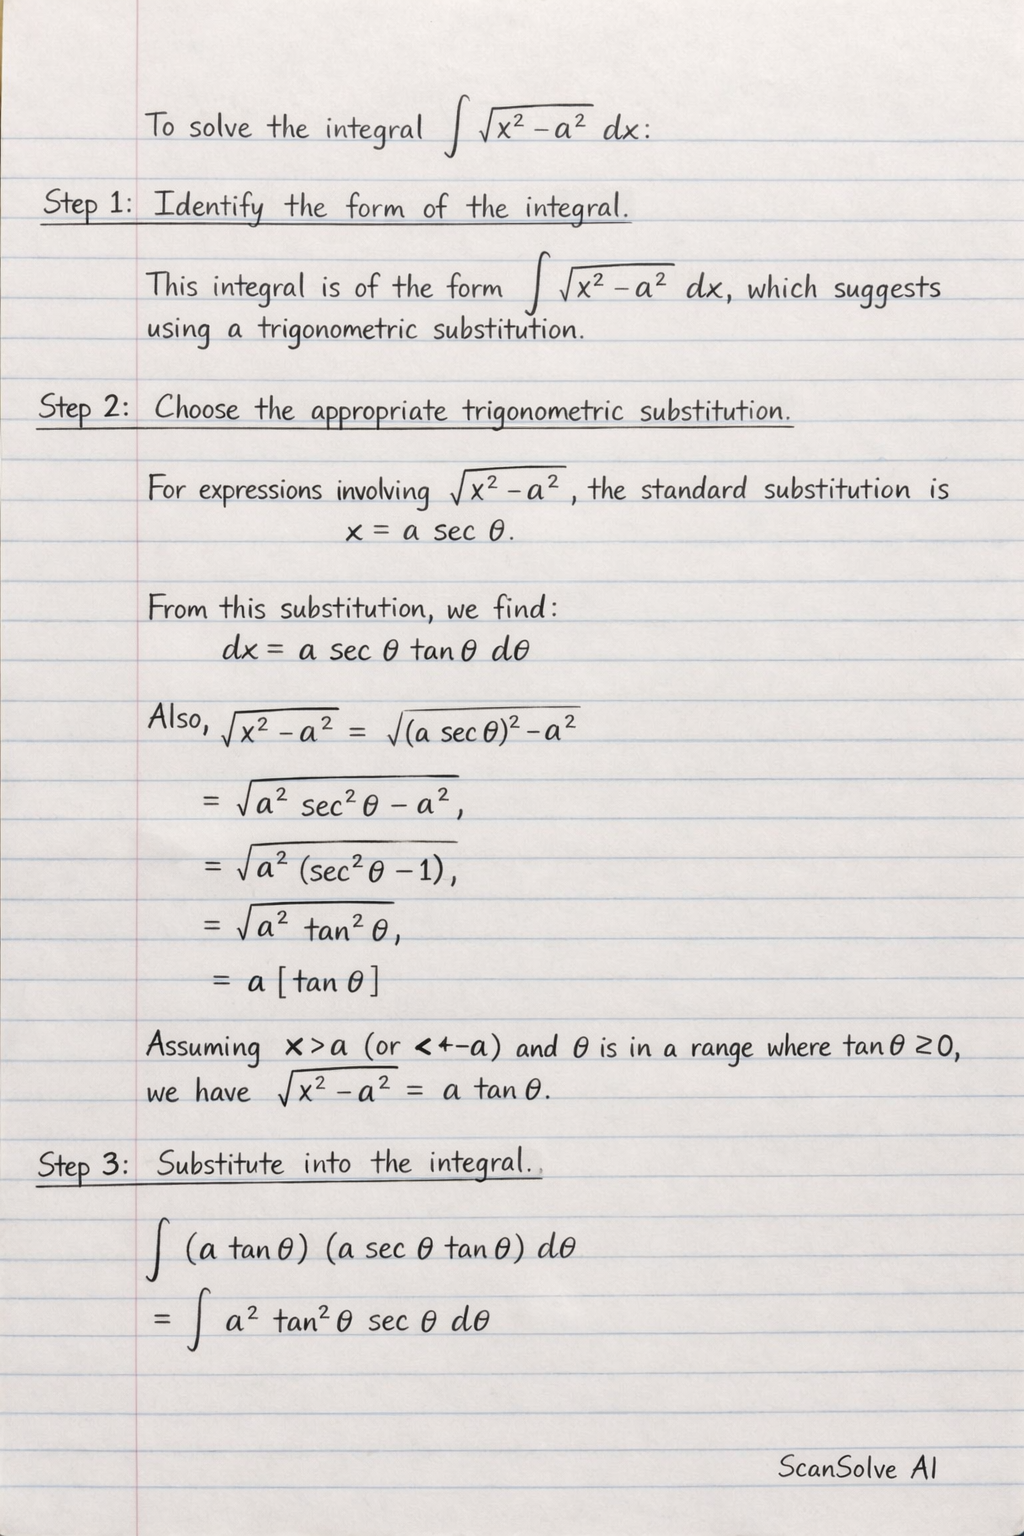 To solve the integral ∫ √(x² − a²) dx:
Step 1: Identify the form of the integral.
This integral is of the form ∫ √(x² − a²) dx, which suggests
using a trigonometric substitution.
Step 2: Choose the appropriate trigonometric substitution.
For expressions involving √(x² − a²), the standard substitution is
x = a sec θ.
From this substitution, we find:
dx = a sec θ tan θ dθ
Also, √(x² − a²) = √((a sec θ)² − a²)
= √(a² sec² θ − a²),
= √(a² (sec² θ − 1)),
= √(a² tan² θ),
= a [tan θ]
Assuming x > a (or < +−a) and θ is in a range where tan θ ≥ 0,
we have √(x² − a²) = a tan θ.
Step 3: Substitute into the integral..
∫ (a tan θ) (a sec θ tan θ) dθ
= ∫ a² tan² θ sec θ dθ
ScanSolve AI